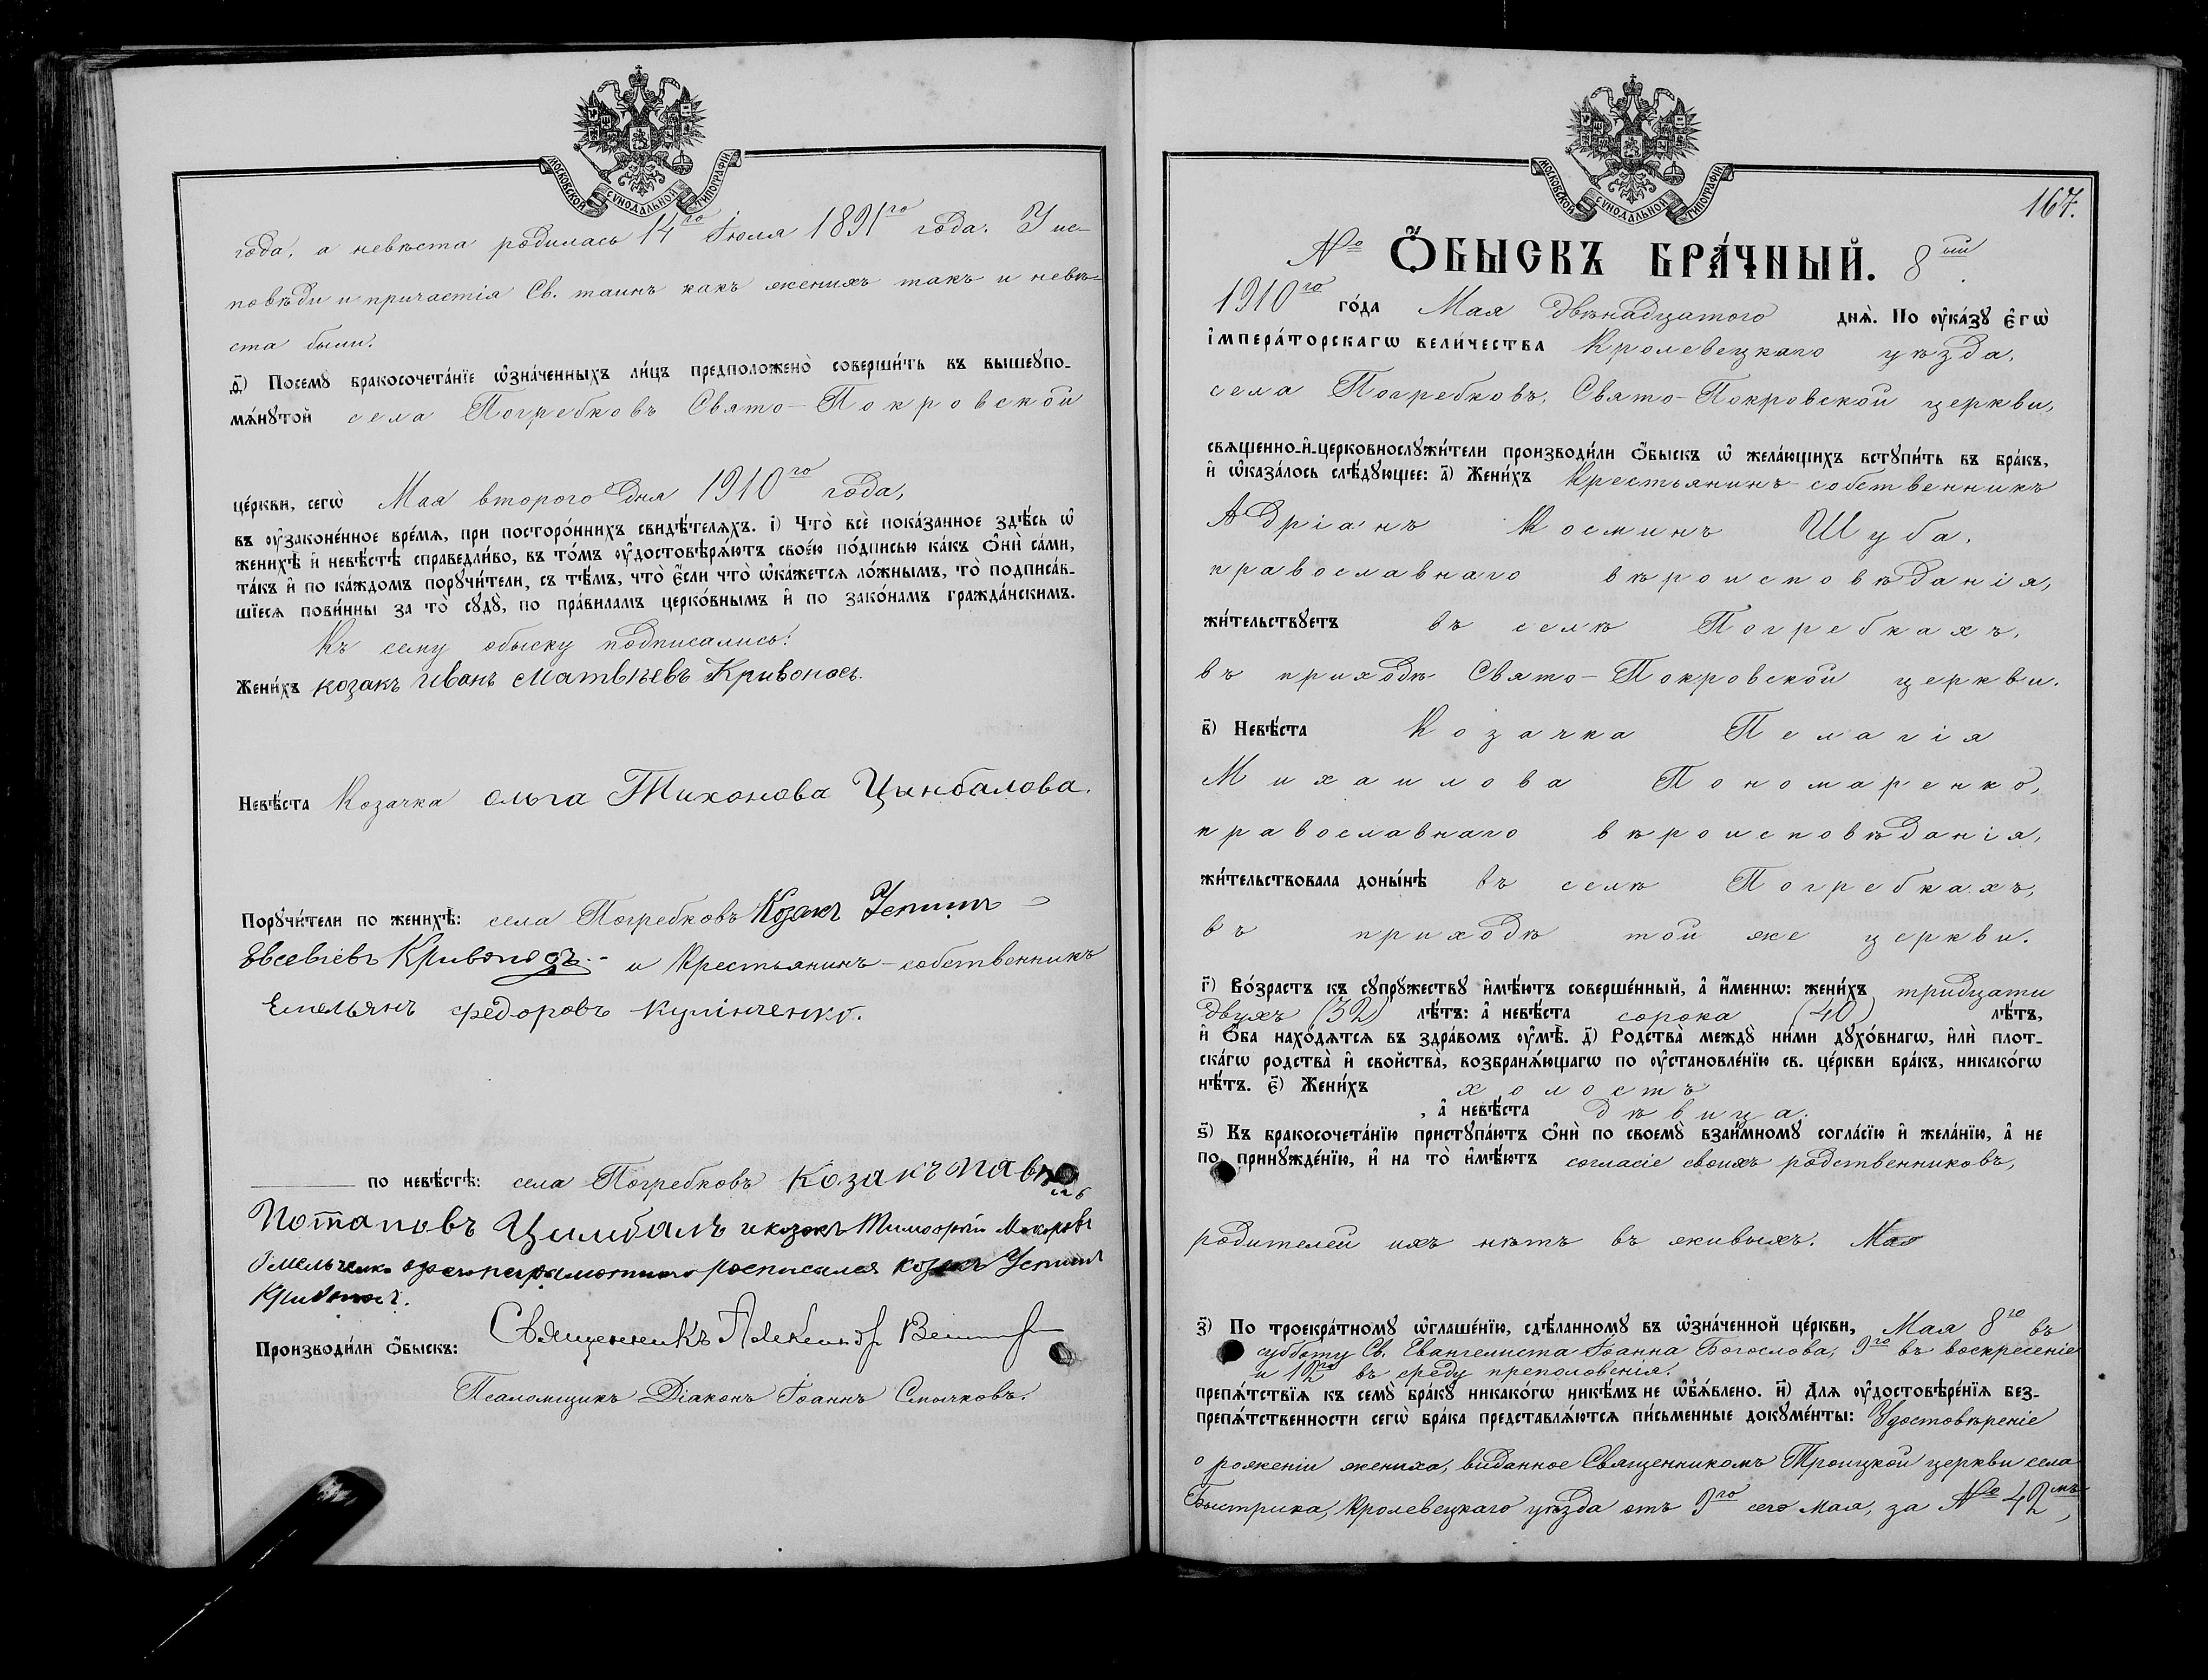 МОСКОВСКОЙ СѴНОДАЛЬНОЙ ТИПОГРАФІИ
года, а невѣста родилась 14го Іюля 1891го года. У ис-
повѣди и причастія Св. таинъ какъ женихъ такъ и невѣ-
ста были.
ѳ҃) Посемꙋ бракосочета́нїе ѡ҆зна́ченныхъ ли́цъ предположено̀ соверши́ть въ вышеꙋпо-
мѧ́нꙋтой села Погребковъ Свято-Покровской
це́ркви, сегѡ̀ Мая второго дня 1910го года,
въ ᲂу҆законе́нное вре́мѧ, при посторо́ннихъ свидѣ́телѧхъ. і҃) Что̀ всѐ пока́занное здѣ́сь ѡ҆
женихѣ̀ и҆ невѣ́стѣ справедли́во, въ то́мъ ᲂу҆достовѣрѧ́ютъ свое́ю по́дписью ка́къ ѻ҆нѝ са́ми,
та́къ и҆ по ка́ждомъ порꙋчи́тели, съ тѣ́мъ, что̀ є҆́сли что̀ ѡ҆ка́жетсѧ ло́жнымъ, то̀ подписа́в-
шїесѧ пови́нны за то̀ сꙋдꙋ̀, по пра́виламъ церко́внымъ и҆ по зако́намъ гражда́нскимъ.
Къ сему обыску подписались:
Жени́хъ козакъ Иванъ Матвѣевъ Кривоносъ.
Невѣ́ста Козачка Ольга Тихонова Цынбалова.
Порꙋчи́тели по женихѣ̀: села Погребковъ Козакъ Устинъ
Евсевіевъ Кривоносъ. и Крестьянинъ-собственникъ
Емельянъ Федоровъ Кулінченко.
по невѣ́стѣ: села Погребковъ Козакъ Павелъ
Потаповъ Цимбалъ и козакъ Тимофей Макаровъ
Омельченко а за неграмотного росписался козакъ Устинъ
Кривоносъ.
Производи́ли ѻ҆́быскъ: Священникъ Александр
Псаломщикъ Діаконъ Іоаннъ Смычковъ.
МОСКОВСКОЙ СѴНОДАЛЬНОЙ ТИПОГРАФІИ
167.
№ Ѻ҆́БЫСКЪ БРА́ЧНЫЙ. 8ый
1910го го́да Мая двѣнадцатого днѧ̀. По ᲂу҆ка́зꙋ є҆гѡ̀
і҆мпера́торскагѡ вели́чества Кролевецкаго уѣзда,
села Погребковъ, Свято-Покровской церкви,
свѧщенно-и҆-церковнослꙋжи́тели производи́ли ѻ҆́быскъ ѡ҆ жела́ющихъ встꙋпи́ть въ бра́къ,
и҆ ѡ҆каза́лось слѣ́дꙋющее: а҃) Жени́хъ Крестьянинъ-собственникъ
Адріанъ Косминъ Шуба,
православнаго вѣроисповѣданія,
жи́тельствꙋетъ въ селѣ Погребкахъ,
въ приходѣ Свято-Покровской церкви.
в҃) Невѣ́ста Козачка Пелагія
Михаилова Пономаренко,
православнаго вѣроисповѣданія,
жи́тельствовала доны́нѣ въ селѣ Погребкахъ,
въ приходѣ той же церкви.
г҃) Во́зрастъ къ сꙋпрꙋжествꙋ и҆мѣ́ютъ соверше́нный, а҆ и҆́меннѡ: жени́хъ тридцати
двухъ (32) лѣ́тъ: а҆ невѣ́ста сорока (40) лѣ́тъ,
и҆ ѻ҆́ба нахо́дѧтсѧ въ здра́вомъ ᲂу҆мѣ̀. д҃) Родства̀ междꙋ̀ ни́ми дꙋхо́внагѡ, и҆лѝ плот-
ска́гѡ родства̀ и҆ свойства̀, возбранѧ́ющагѡ по ᲂу҆становле́нїю св. це́ркви бра́къ, никако́гѡ
нѣ́тъ. є҃) Жени́хъ холостъ
, а҆ невѣ́ста дѣвица.
ѕ҃) Къ бракосочета́нїю пристꙋпа́ютъ ѻ҆нѝ по своемꙋ̀ взаи́мномꙋ согла́сїю и҆ жела́нїю, а҆ не
по принꙋжде́нїю, и҆ на то̀ и҆мѣ́ютъ согласіе своихъ родственниковъ,
родителей ихъ нѣтъ въ живыхъ. Мая
з҃) По троекра́тномꙋ ѡ҆глаше́нїю, сдѣ́ланномꙋ въ ѡ҆зна́ченной це́ркви, Мая 8го въ
субботу Св. Евангелиста Іоанна Богослова, 9го въ воскресеніе
и 12го въ среду преполовенія.
препѧ́тствїѧ къ семꙋ̀ бра́кꙋ никако́гѡ никѣ́мъ не ѡ҆б̾ѧ́влено. и҃) Длѧ ᲂу҆достовѣре́нїѧ без-
препѧ́тственности сегѡ̀ бра́ка представлѧ́ютсѧ пи́сьменные докꙋме́нты: Удостовѣреніе
о рожденіи жениха, виданное Священникомъ Троицкой церкви села
Быстрика, Кролевецкаго уѣзда отъ 9го сего мая, за № 42мъ,